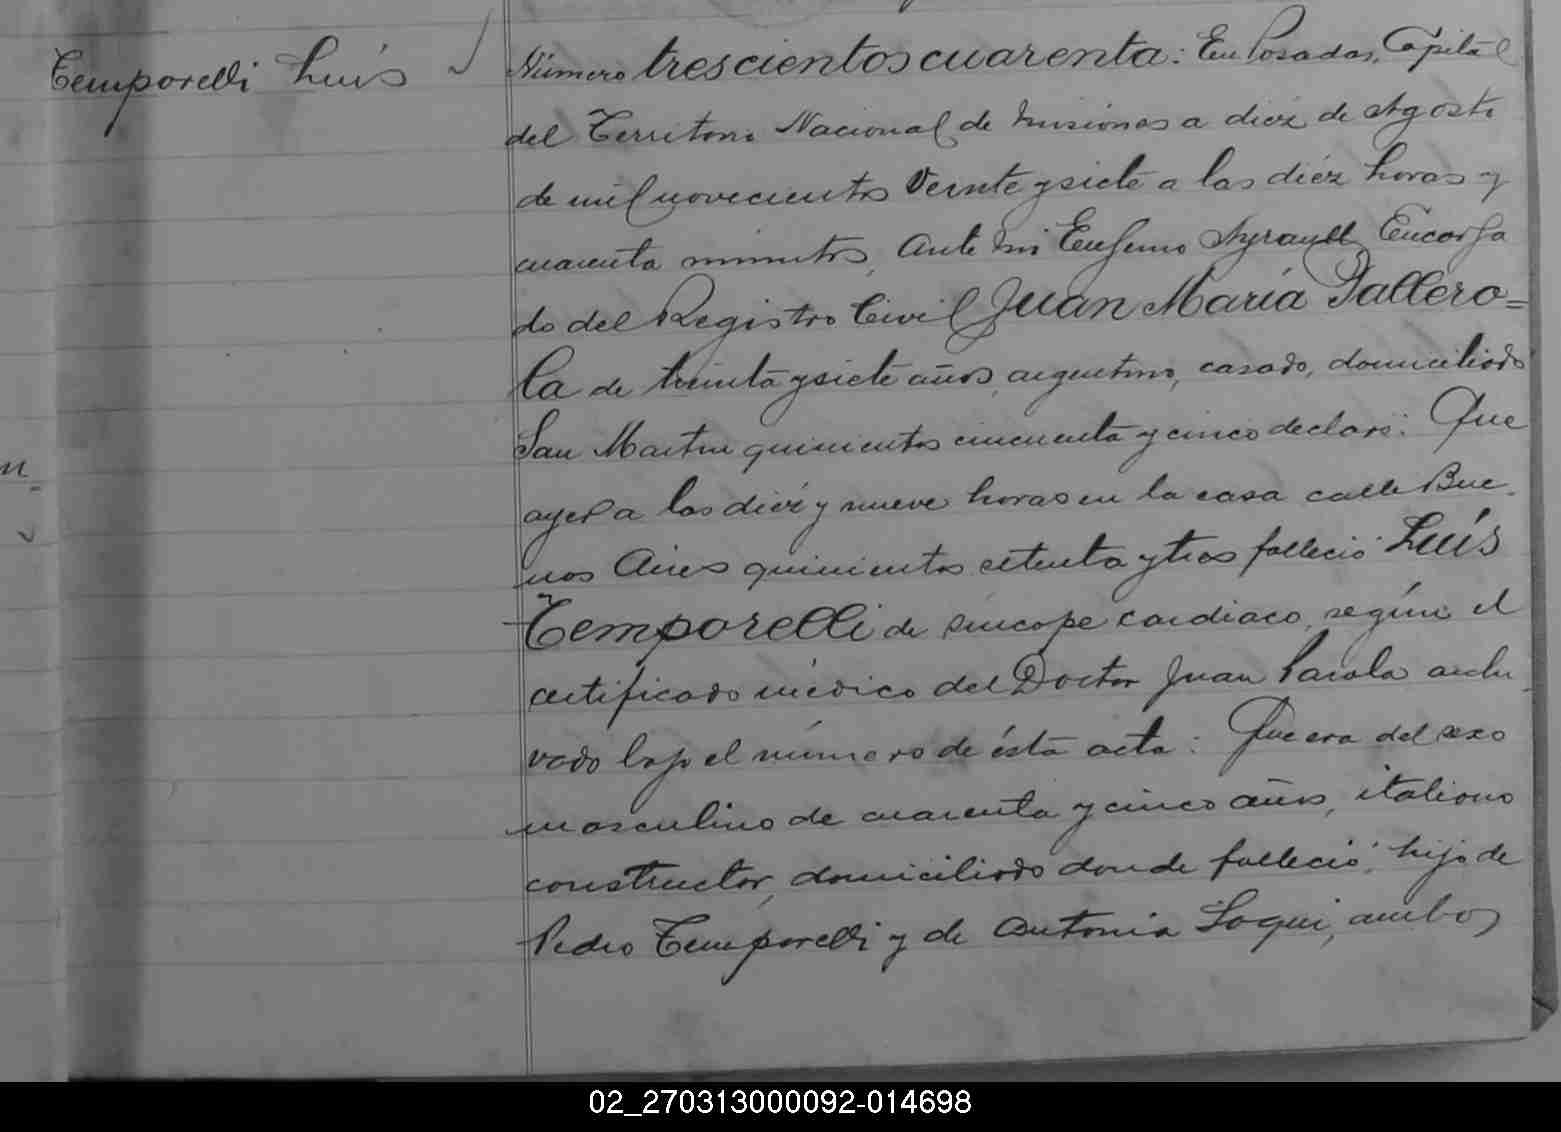 Temporelli Luís
Número trescientos cuarenta: En Posadas, Capital
del Territorio Nacional de Misiones a diez de Agosto
de mil novecientos veinte y siete a las diéz horas y
cuarenta minutos, ante mi Eugenio Ayrault Encarga
do del Registro Civil Juan María Pallero=
la de treinta y siete años, argentino, casado, domiciliado
San Martin quinientos cincuenta y cinco declaró: Que
ayer a las diéz y nueve horas en la casa calle Bue
nos Aires quinientos setenta y tres falleció Luís
Temporelli de síncope cardiaco, según el
certificado médico del Doctor Juan archi
vado bajo el número de ésta acta: Que era del sexo
masculino de cuarenta y cinco años, italiano
constructor, domiciliado donde falleció, hijo de
Pedro Temporelli y de Antonia Soqui, ambos
02_270313000092-014698